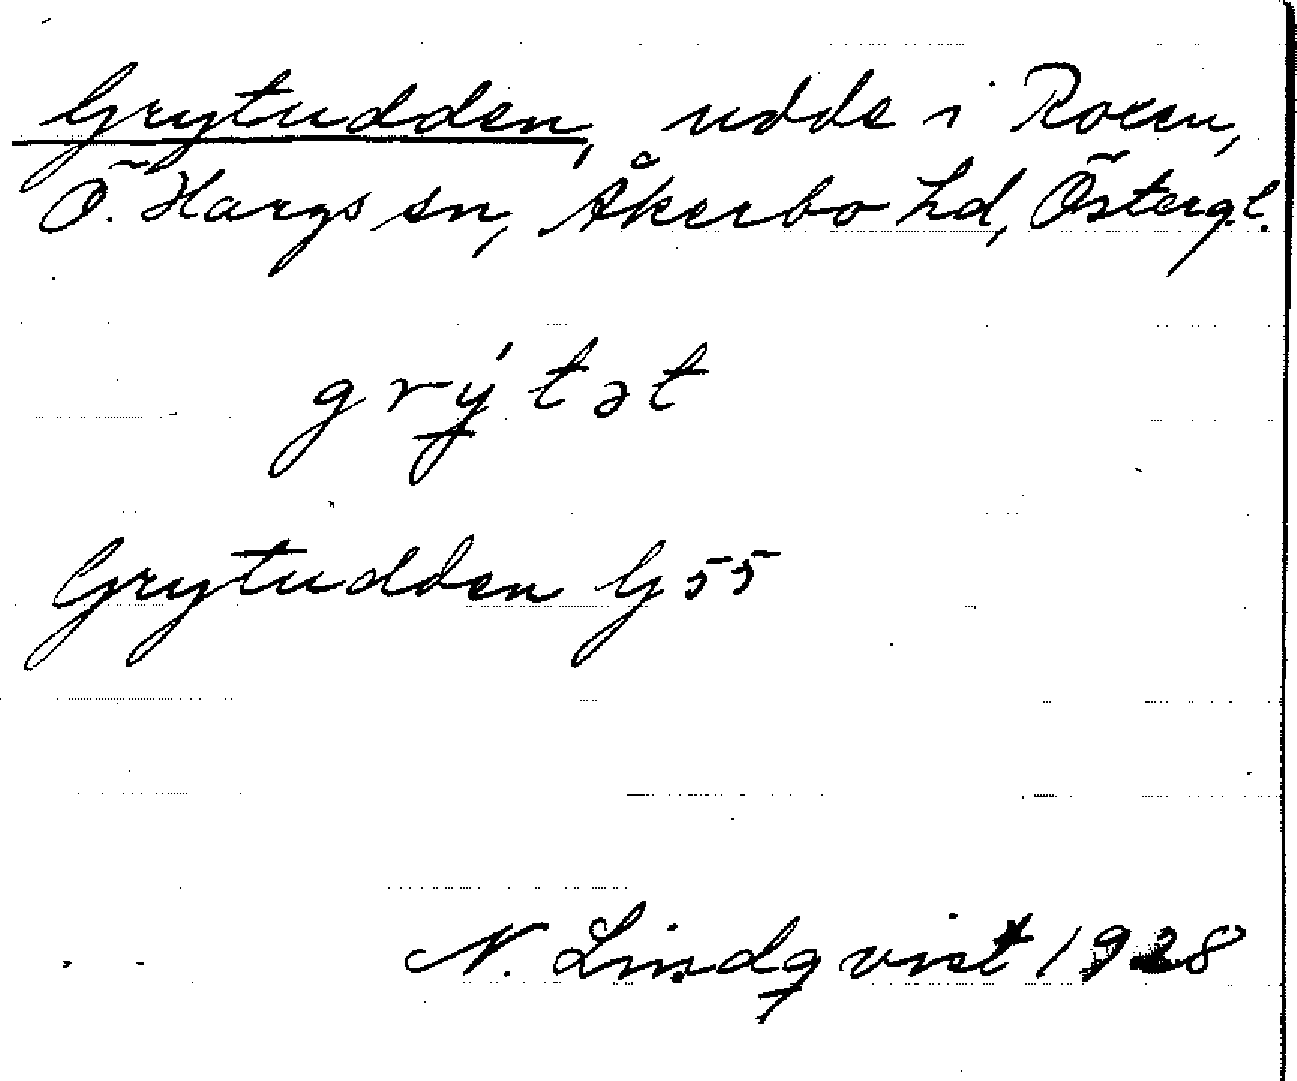 Grytudden, udde i Roxen,
Ö. Hargs sn, Åkerbo hd, Östergl.
grýtət
Grytudden G 55
N. Lindqvist 1928